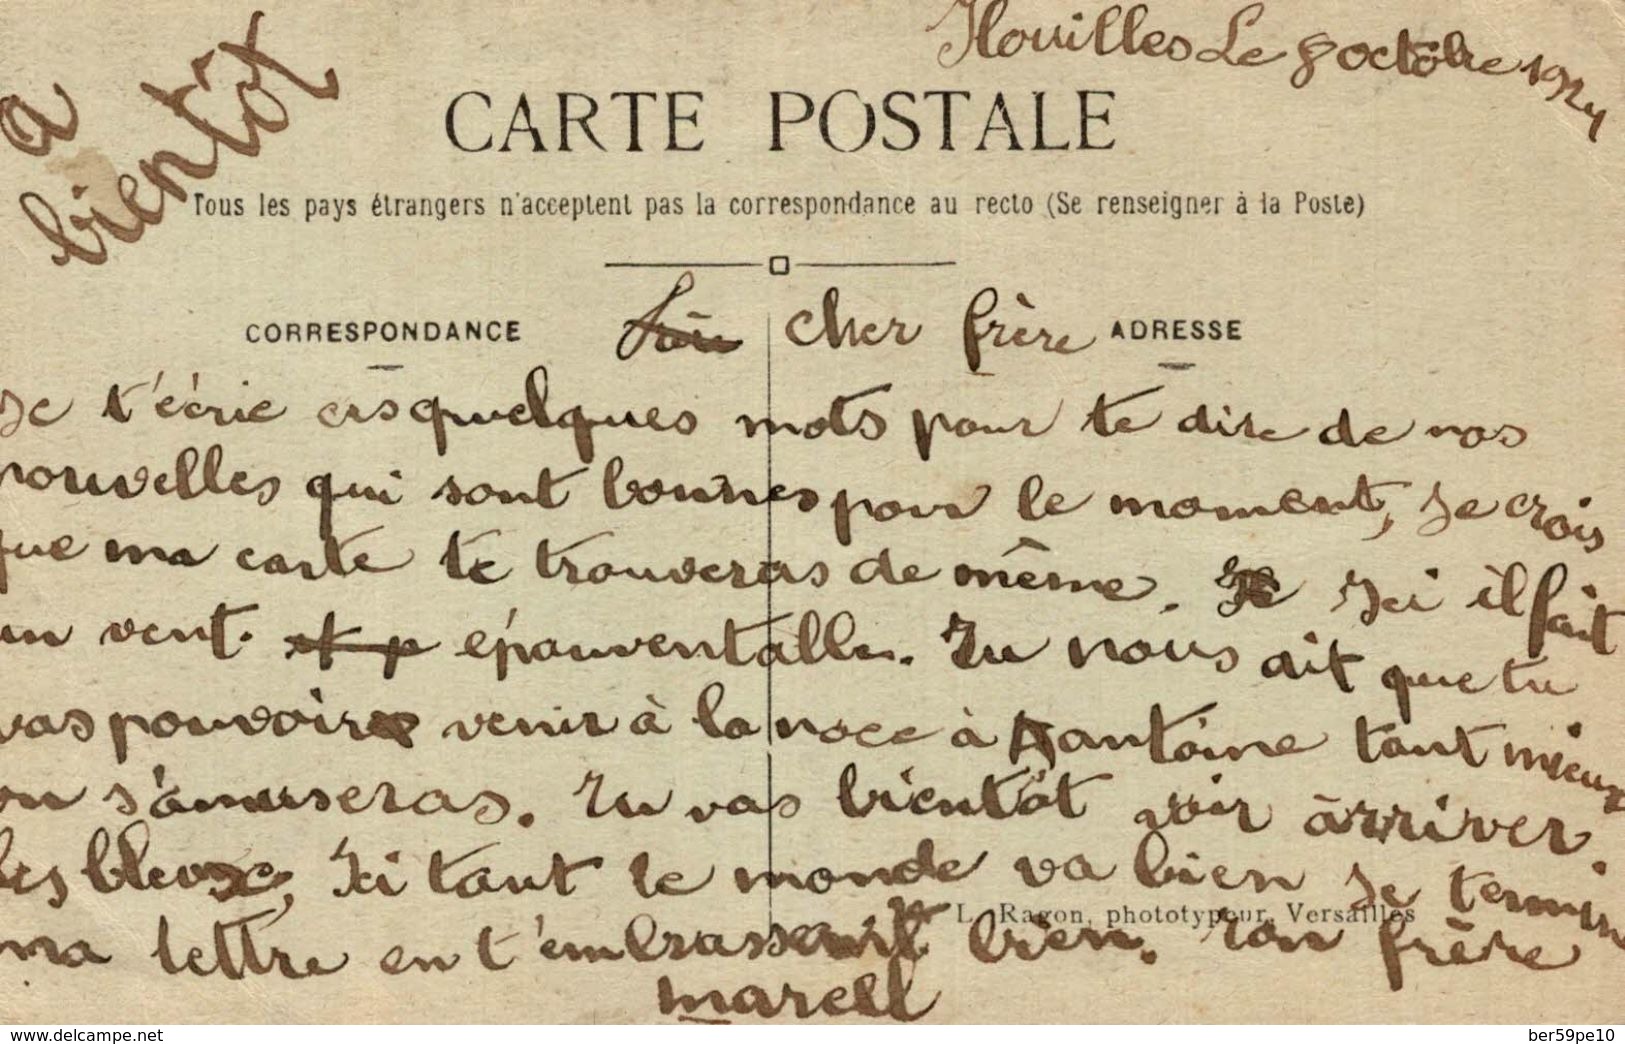 Houilles Le 8 octobre 1924
a
bientot
CARTE POSTALE
Tous les pays étrangers n'acceptent pas la correspondance au recto (Se renseigner à la Poste)
CORRESPONDANCE
cher frère
ADRESSE
Je t'écrie ces quelques mots pour te dire de nos
nouvelles qui sont bonnes pour le moment, je crois
que ma carte te trouveras de même. Ici il fait
un vent. épouventalle. Tu nous dit que tu
vas pouvoir venir à la noce à Antoine tant mieux
on s'amuseras. Tu vas bientôt voir arriver.
les bleux, Ici tout le monde va bien je termine
L. Ragon, phototypeur, Versailles
ma lettre en t'embrassent bien. Ton frère
marcell
www.delcampe.net
ber59pe10